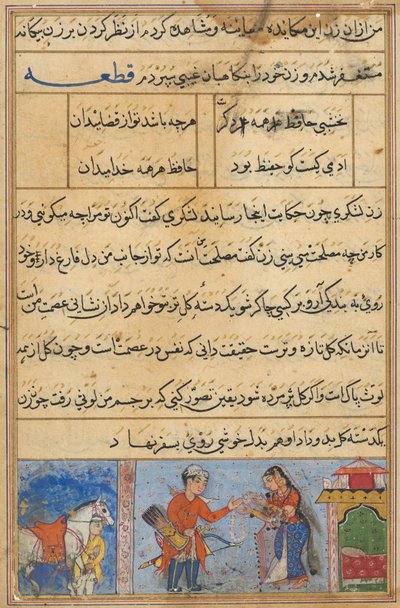 من از ان زن این مکایده معاینه و مشاهده کردم از نظر کردن بر زن بیکانه
متنفر شدم و زن خود را بنکاهبان غیبی سپردم قطعه
نخشبی حافظ همه دکر هرچه باشد تو از فضلیندان
ادمی کیست کو حفیظ بود حافظ هر همه خدایدان
زن لشکری چون حکایت اینجا رسانید لشکری کفت اکنون تو مرا چه میکوئی و در
کار من چه مصلحت می بینی زن کفت مصلحت ان است که تو از جانب من دل فارغ دار و خود
روی به بندکی آر و بر کسی چاکر شو یکدسته کل تر بتو خواهم داد ان نشانی عصمت من است
تا آن زمانکه کل تازه و تر ست حقیقت دانی که نفس در عصمت است و چون کل از همه
لوث پاک است و اکر کل پژمرده شود یقین تصور کنی که بر جسم من لوثی رفت چون زن
یکدسته کل بدو داد او هم بدل خوشی روی بسفر نهاد